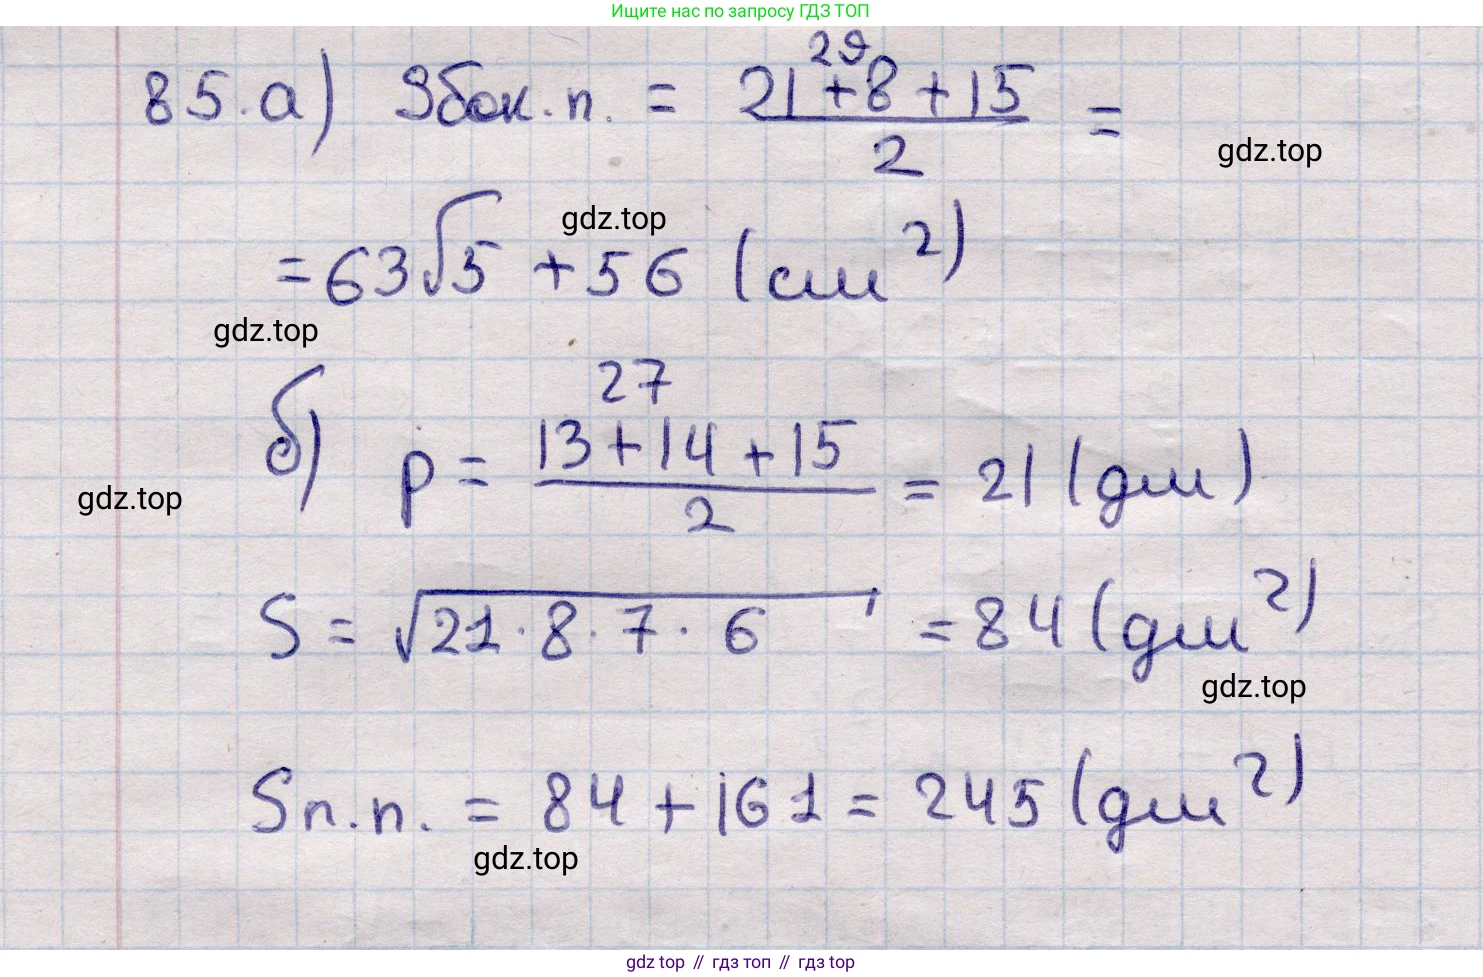 Ищите нас по запросу ГДЗ ТОП
29
85.а) Sбок.п. = 21+8+15 =
2
gdz.top
gdz.top
=63√5 +56 (см²)
gdz.top
27
б) p = 13+14+15 = 21 (дм)
2
gdz.top
S = √21·8·7·6 =84 (дм²)
gdz.top
Sп.п. = 84+161 = 245 (дм²)
gdz.top
gdz top // гдз топ // гдз top